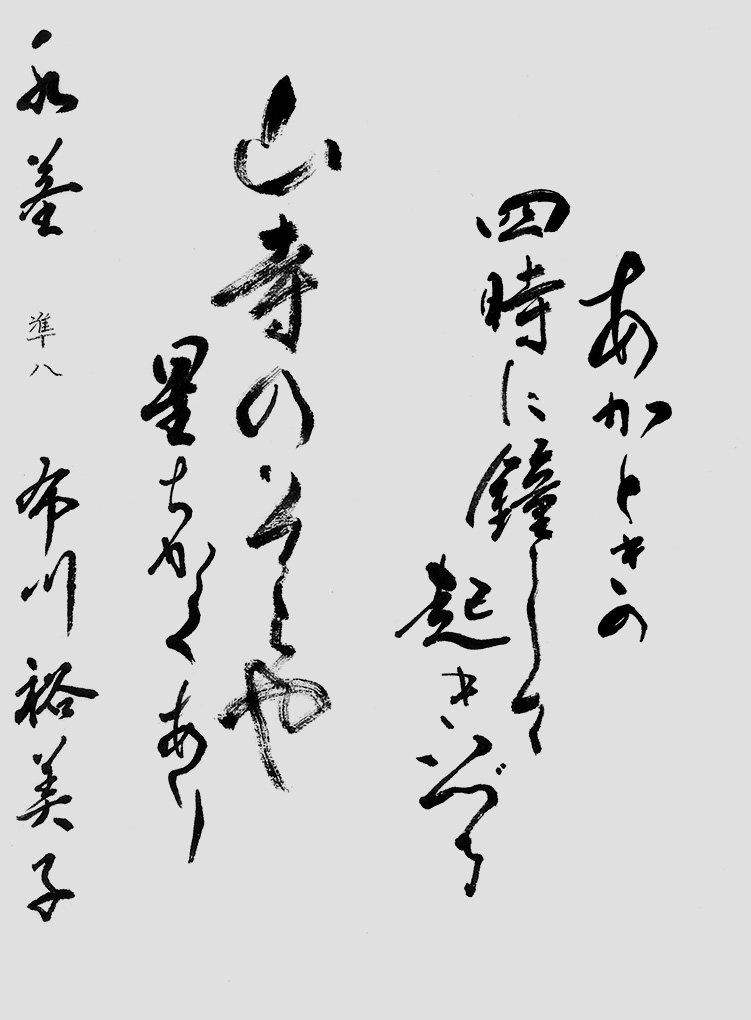 あかときの
四時に鐘して
起きいづる
山寺のそらや
星ちかくあり
永峯 準八 布川裕美子